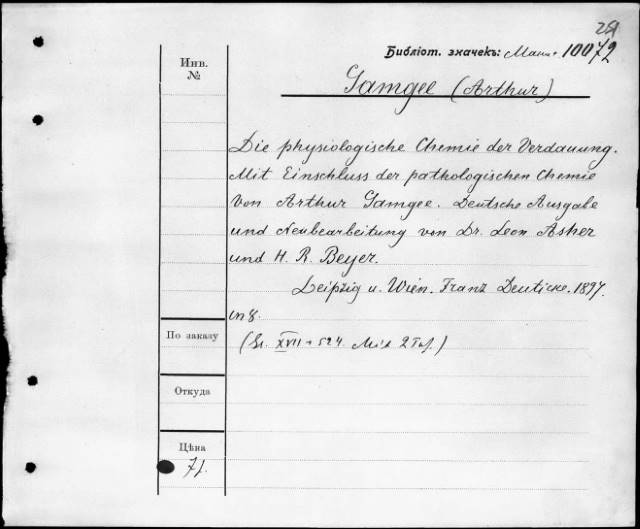 Библіот. значекъ: Маш. 10072
Инв.
№
Gamgee (Arthur)
Die physiologische Chemie der Verdauung.
Mit Einschluss der pathologischen Chemie
von Arthur Gamgee. Deutsche Ausgabe
und Neubearbeitung von Dr. Leon Asher
und H. R. Beyer.
Leipzig u. Wien. Franz Deuticke. 1897.
in 8.
По заказу
XVII + 524. Mit 2 Taf.)
Откуда
Цѣна